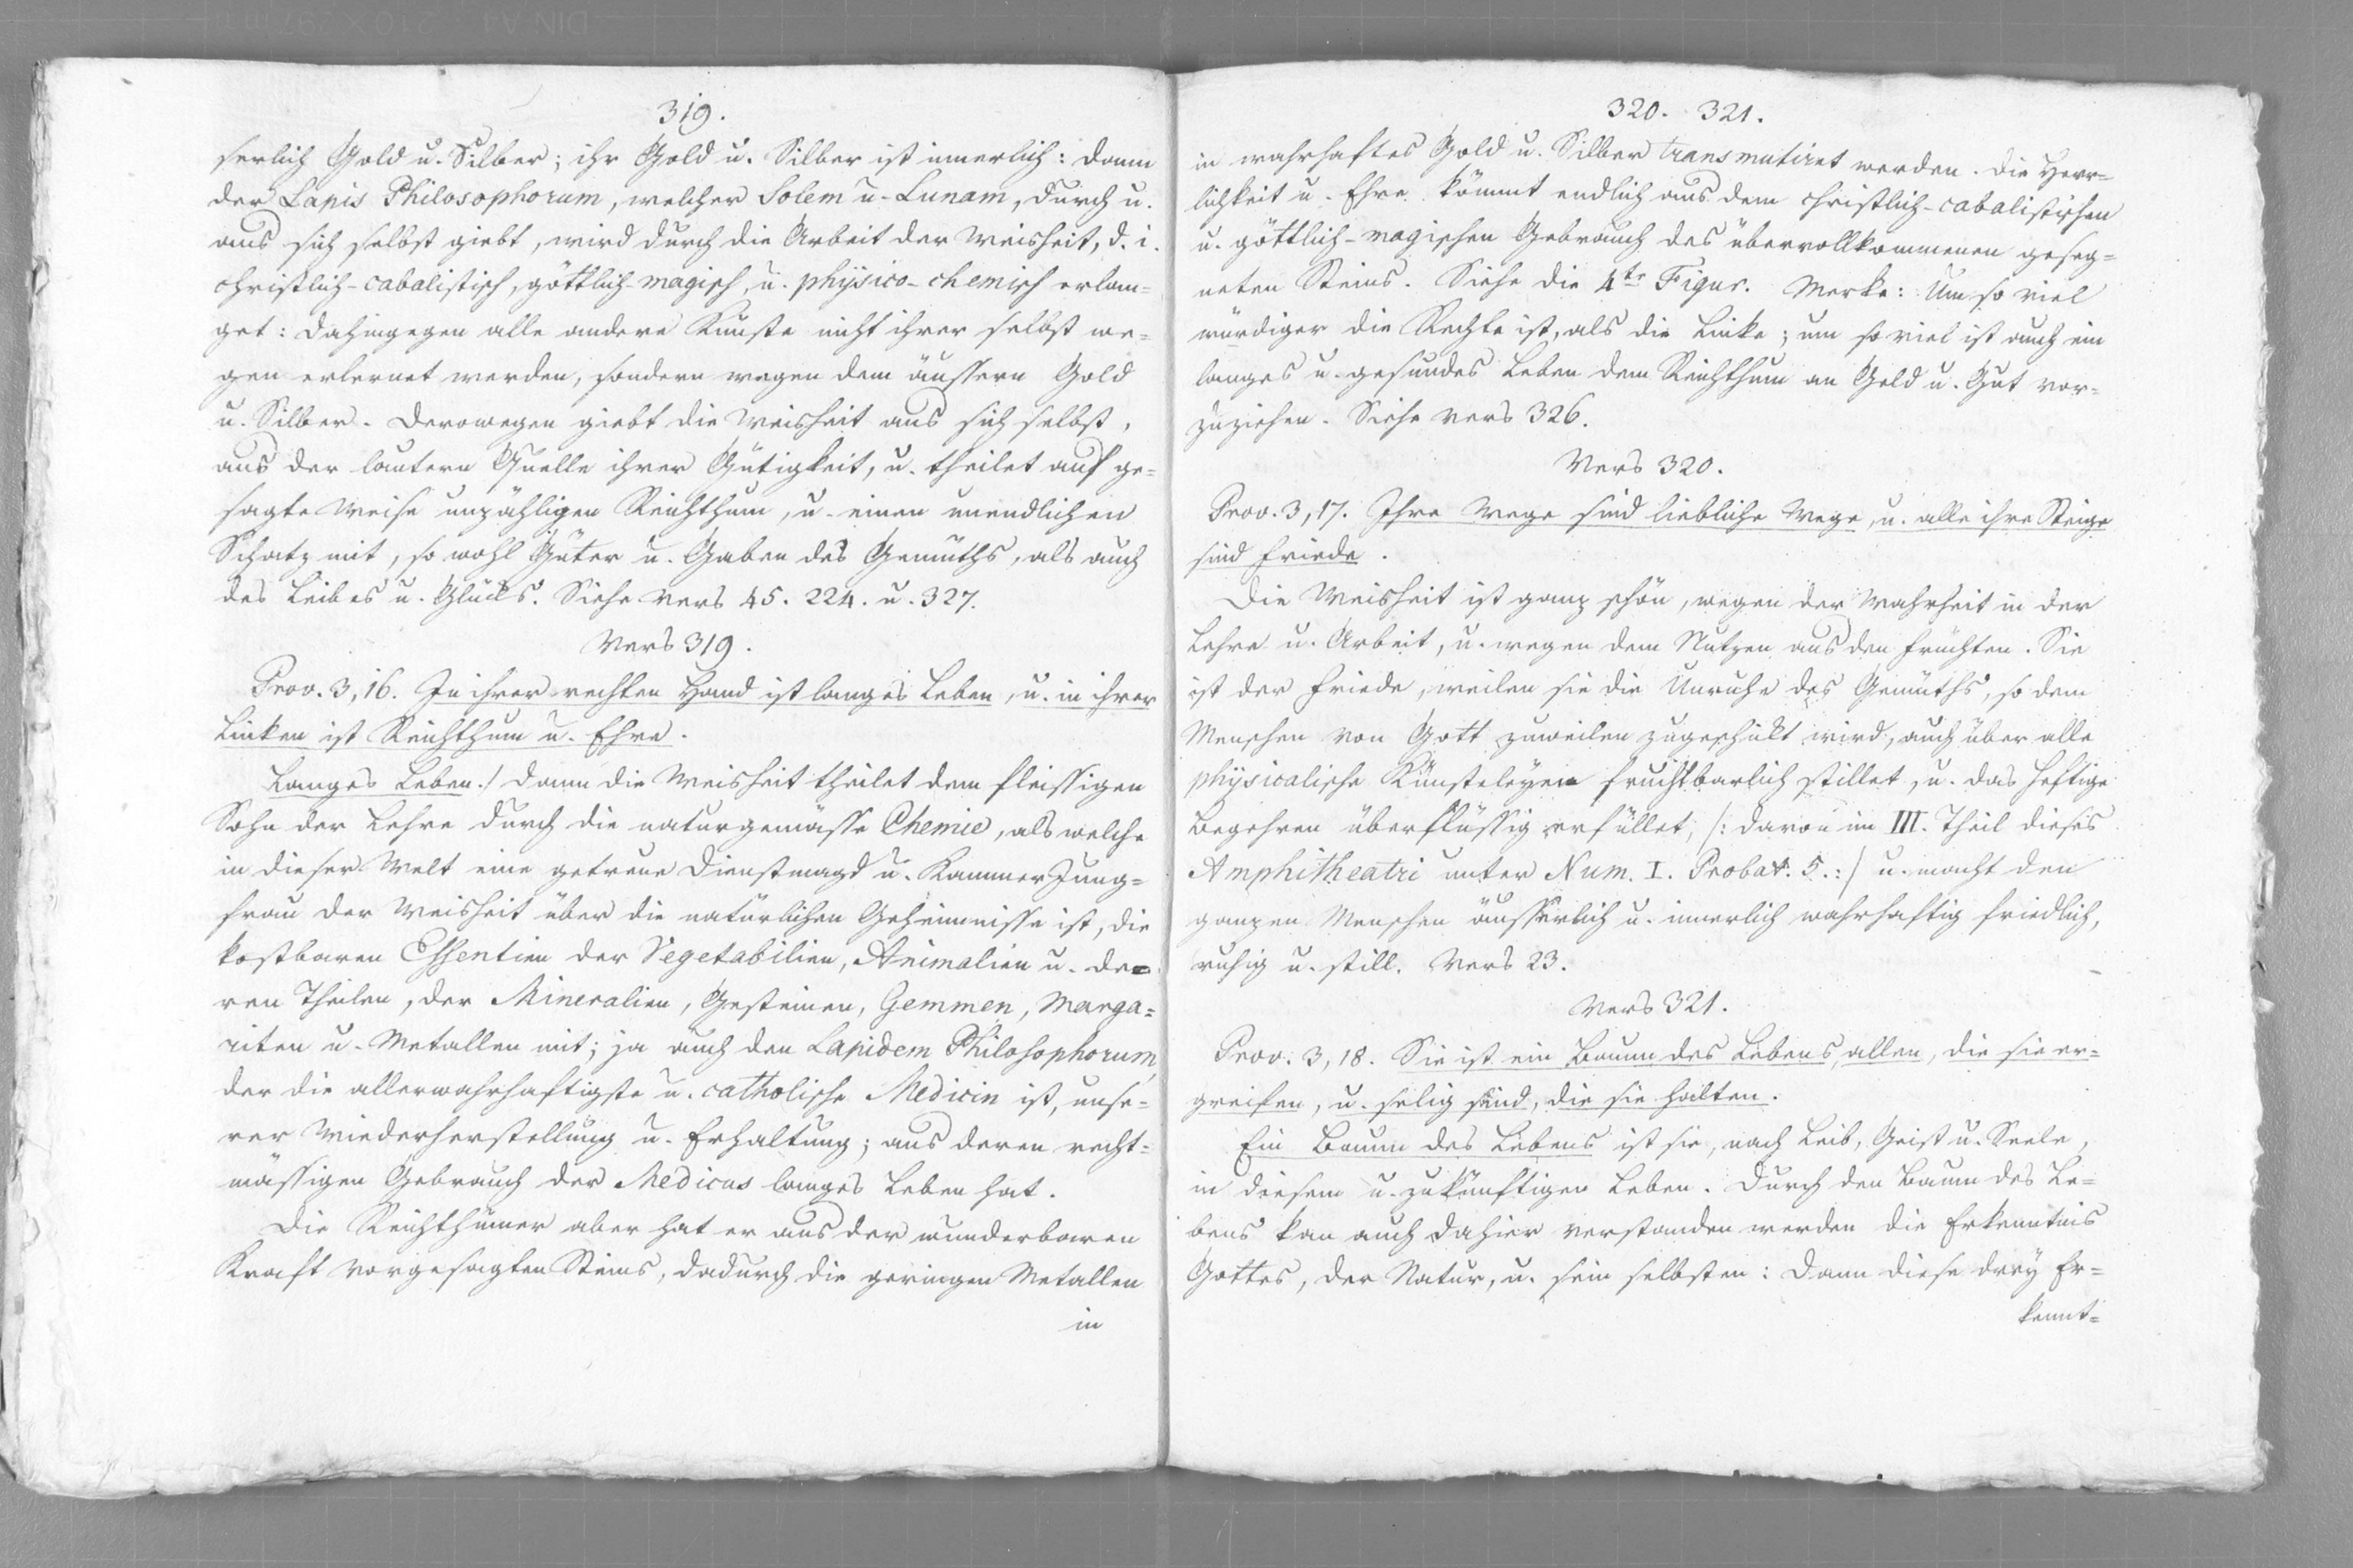 319.
serlich Gold u. Silber; ihr Gold u. Silber ist innerlich: dann
der Lapis Philosophorum, welcher Solem u. Lunam, durch u.
aus sich selbst giebt, wird durch die Arbeit der Weisheit, d. i.
christlich-cabalistisch, göttlich-magisch, u. physico-chemisch erlan=
get: dahingegen alle andere Künste nicht ihrer selbst we=
gen erlernet werden, sondern wegen dem äussern Gold
u. Silber. Derowegen giebt die Weisheit aus sich selbst,
aus der lautern Quelle ihrer Gütigkeit, u. theilet auf ge=
sagte Weise unzähligen Reichthum, u. einen unendlichen
Schatz mit, so wohl Güter u. Gaben des Gemüths, als auch
des Leibes u. Glücks. Siehe Vers 45. 224. u. 327.
Vers 319.
Prov. 3, 16. In ihrer rechten Hand ist langes Leben, u. in ihrer
Linken ist Reichthum u. Ehre.
Langes Leben./ Dann die Weisheit theilet dem fleissigen
Sohn der Lehre durch die naturgemässe Chemie, als welche
in dieser Welt eine getreue Dienstmagd u. Kammer Jung=
frau der Weisheit über die natürlichen Geheimnisse ist, die
kostbaren Essentien der Vegetabilien, Animalien u. de=
ren Theilen, der Mineralien, Gesteinen, Gemmen, Marga=
riten u. Metallen mit; ja auch den Lapidem Philosophorum,
der die allerwahrhaftigste u. catholische Medicin ist, unse=
rer Wiederherstellung u. Erhaltung; aus deren recht=
mässigen Gebrauch der Medicus langes Leben hat.
Die Reichthümer aber hat er aus der wunderbaren
Kraft vorgesagten Steins, dadurch die geringen Metallen
in
320. 321.
in wahrhaftes Gold u. Silber transmutiret werden. Die Herr=
lichkeit u. Ehre kömmt endlich aus dem christlich-cabalistischen
u. göttlich-magischen Gebrauch des übervollkommenen geseg=
neten Steins. Siehe die 4te Figur. Merke: Um so viel
würdiger die Rechte ist, als die Linke; um so viel ist auch ein
langes u. gesundes Leben dem Reichthum an Geld u. Gut vor=
zuziehen. Siehe Vers 326.
Vers 320.
Prov. 3, 17. Ihre Wege sind liebliche Wege, u. alle ihre Steige
sind Friede.
Die Weisheit ist ganz schön, wegen der Wahrheit in der
Lehre u. Arbeit, u. wegen dem Nutzen aus den Früchten. Sie
ist der Friede, weilen sie die Unruhe des Gemüths, so dem
Menschen von Gott zuweilen zugeschikt wird, auch über alle
physicalische Künsteleyen fruchtbarlich stillet, u. das heftige
Begehren überflüssig erfüllet, /: davon im III. Theil dieses
Amphitheatri unter Num. I. Probat. 5. :/ u. macht den
ganzen Menschen äusserlich u. innerlich wahrhaftig friedlich,
ruhig u. still. Vers 23.
Vers 321.
Prov. 3, 18. Sie ist ein Baum des Lebens, allen, die sie er=
greifen, u. selig sind, die sie halten.
Ein Baum des Lebens ist sie, nach Leib, Geist u. Seele,
in diesem u. zukünftigen Leben. Durch den Baum des Le=
bens kan auch dahier verstanden werden die Erkenntnis
Gottes, der Natur, u. sein selbsten: Dann diese drey Er=
kennt=